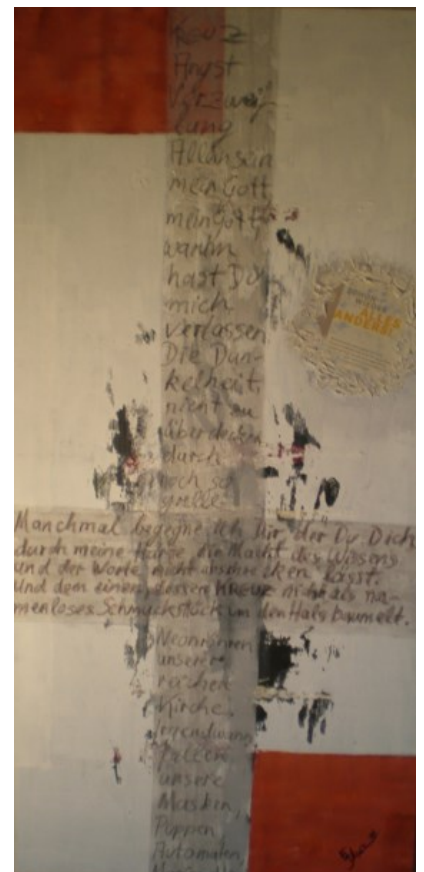 Kreuz
Angst
Verzweif
lung
Alleinsein
mein Gott,
mein Gott,
warum
hast Du
mich
verlassen
Die Dun-
kelheit
nicht zu
überdecken
durch
noch so
grelle
ALLES
ANDERE
Manchmal begegne ich Dir, der Du Dich
durch meine die Macht des Wissens
und der Worte nicht abschrecken lässt.
Und dem einen, dessen KREUZ nicht als na-
menloses Schmuckstück um den Hals baumelt.
Neonröhren
unserer
reichen
Kirche.
Irgendwann
fallen
unsere
Masken,
Puppen,
Automaten,